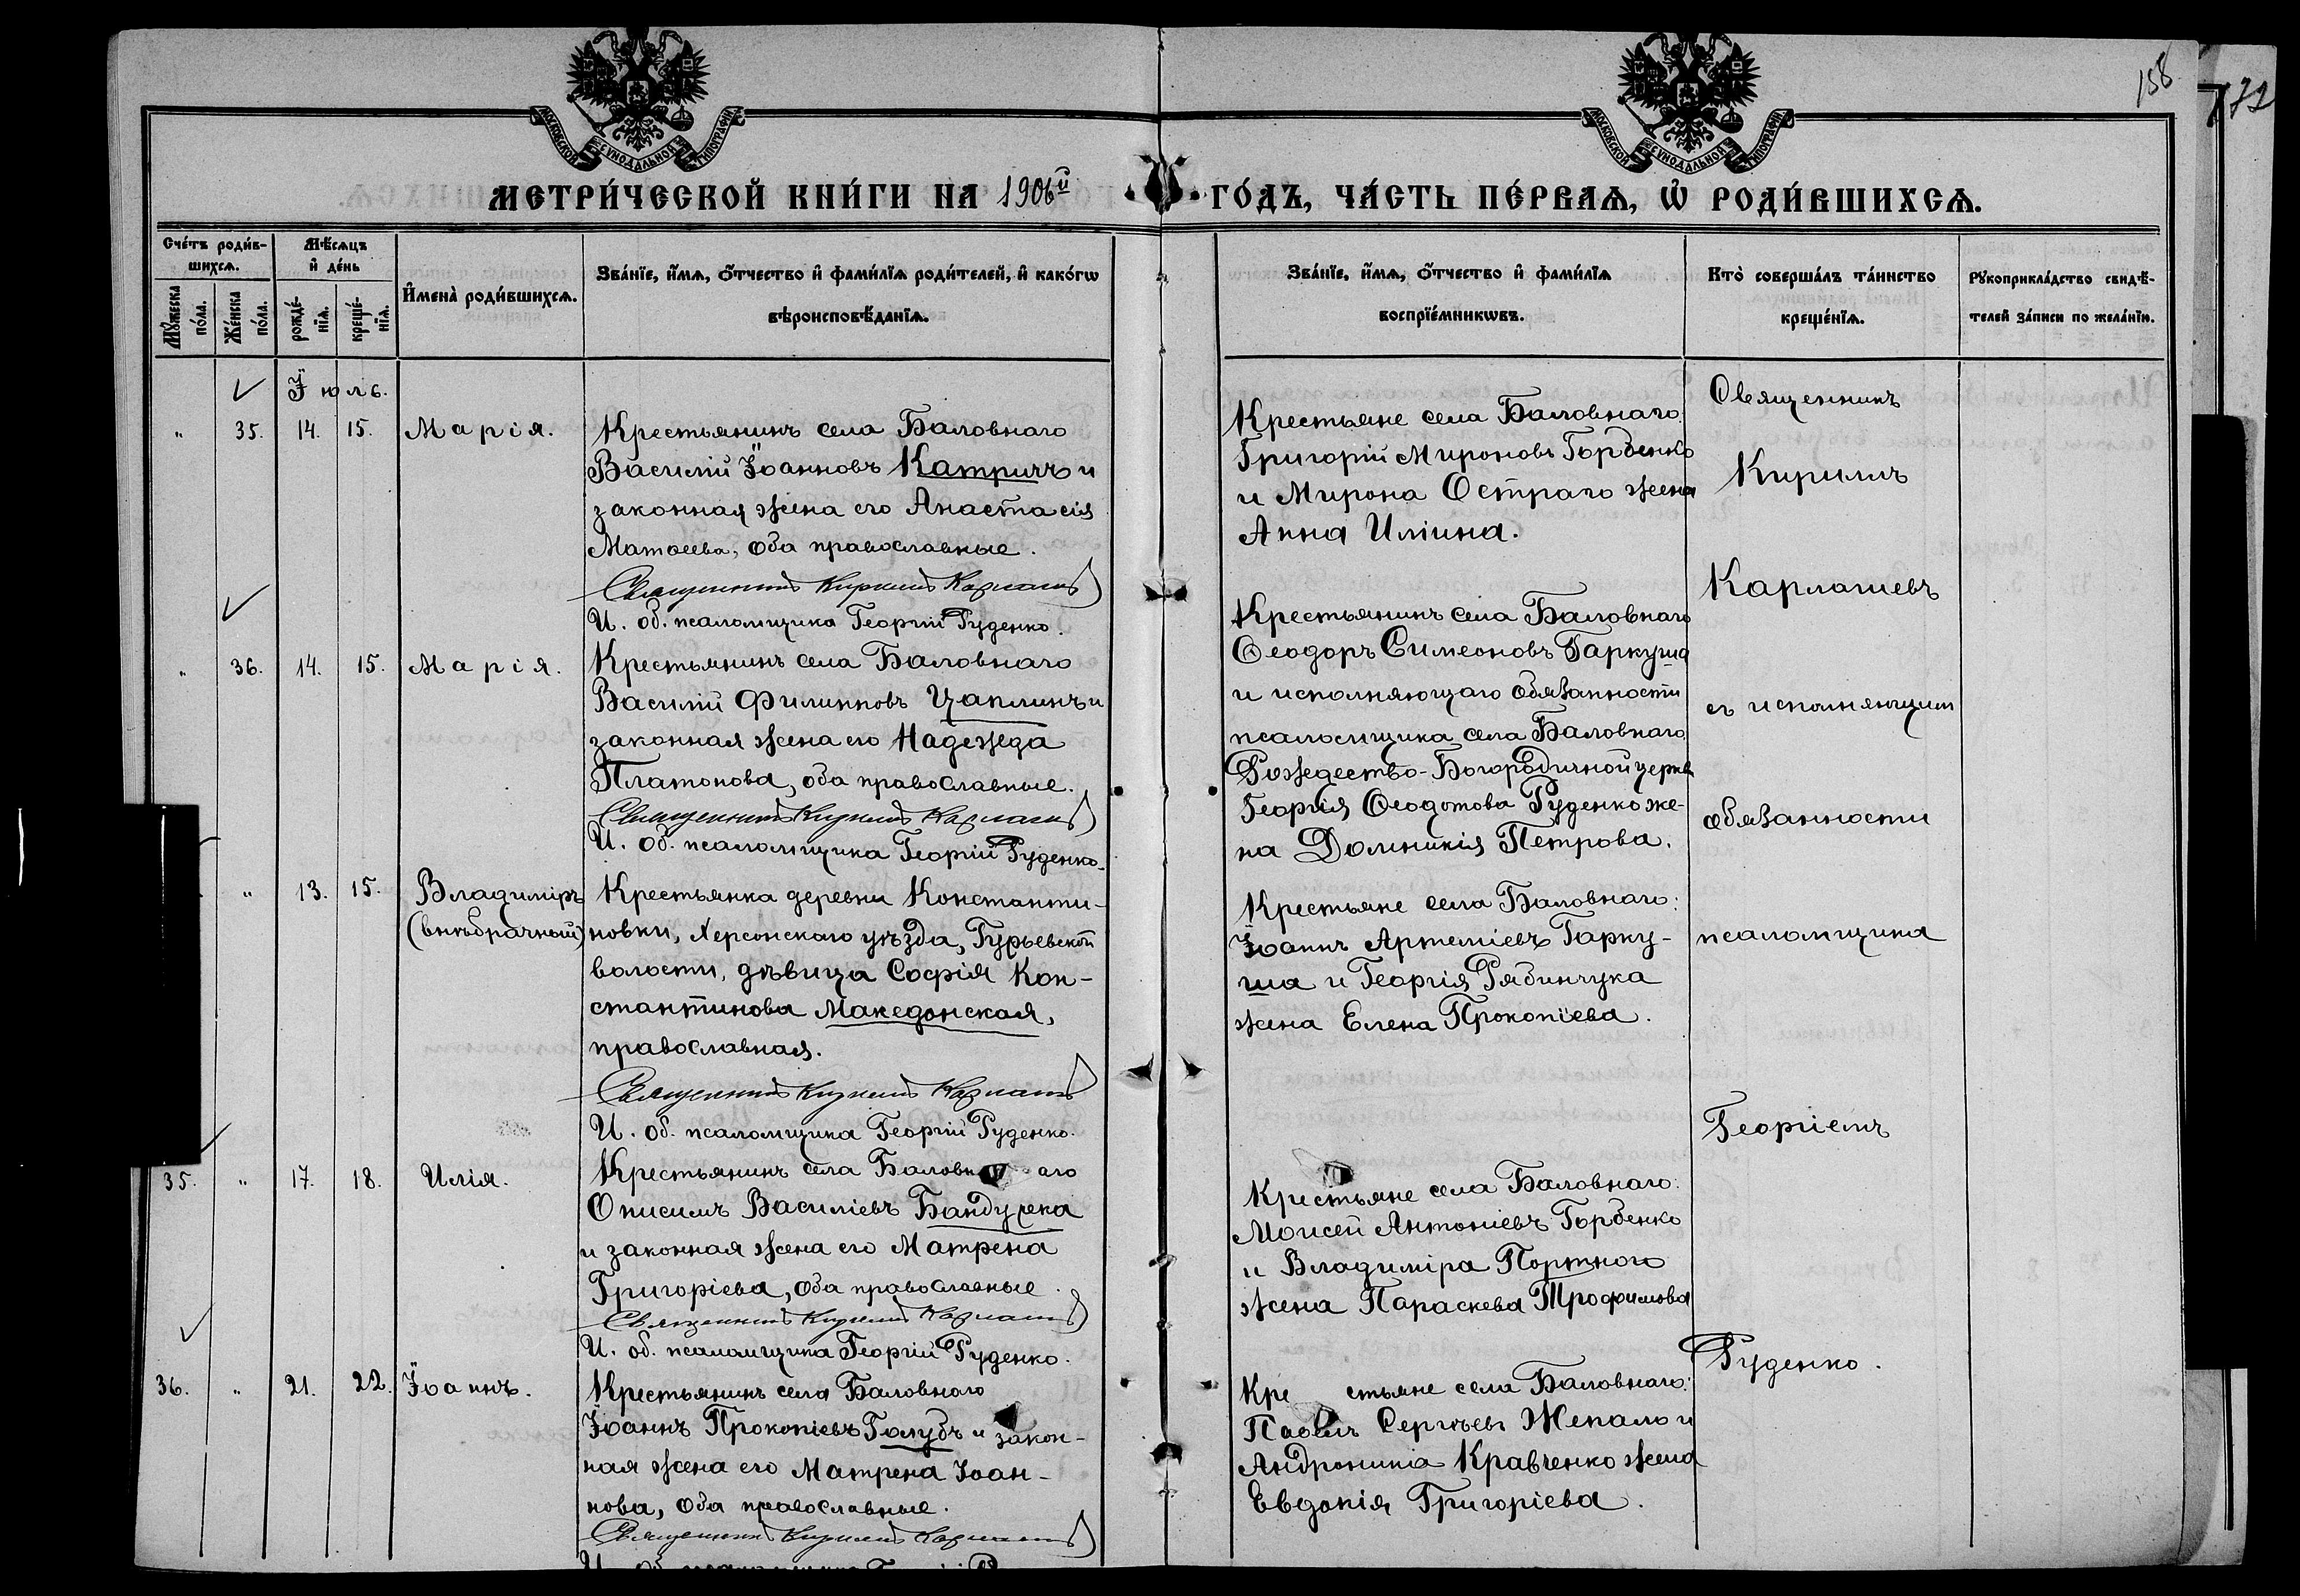 158
172
МОСКОВСКОЙ СѴНОДАЛЬНОЙ ТИПОГРАФІИ
МОСКОВСКОЙ СѴНОДАЛЬНОЙ ТИПОГРАФІИ
МЕТРИ́ЧЕСКОЙ КНИ́ГИ НА 1906й
ГО́ДЪ, ЧА́СТЬ ПЕ́РВАѦ, Ѡ҆ РОДИ́ВШИХСѦ.
Сче́тъ роди́в-
шихсѧ.
Мꙋ́жеска
по́ла.
Же́нска
по́ла.
Мѣ́сѧцъ
и҆ де́нь
рожде́-
нїѧ.
креще́-
нїѧ.
И҆мена̀ роди́вшихсѧ.
Зва́нїе, и҆́мѧ, ѻ҆́тчество и҆ фами́лїѧ роди́телей, и҆ како́гѡ
вѣроисповѣ́данїѧ.
Зва́нїе, и҆́мѧ, ѻ҆́тчество и҆ фами́лїѧ
воспрїе́мникѡвъ.
Кто̀ соверша́лъ та́инство
креще́нїѧ.
Рꙋкоприкла́дство свидѣ́-
телей за́писи по жела́нїю.
Іюль.
„ 35. 14. 15. Марія.
Крестьянинъ села Баловнаго
Василій Іоанновъ Катричъ и
законная жена его Анастасія
Матѳеева, оба православные.
Священникъ Кириллъ Карлашевъ
И. об. псаломщика Георгій Руденко.
Крестьяне села Баловнаго:
Григорій Мироновъ Горбенко
и Мирона Остраго жена
Анна Иліина.
„ 36. 14. 15. Марія.
Крестьянинъ села Баловнаго
Василій Филипповъ Цаплинъ и
законная жена его Надежда
Платонова, оба православные.
Священникъ Кириллъ Карлашевъ
И. об. псаломщика Георгій Руденко.
Крестьянинъ села Баловнаго
Ѳеодоръ Симеоновъ Гаркуша
и исполняющаго обязанности
псаломщика села Баловнаго
Рождество-Богородичной церкви
Георгія Ѳеодотова Руденко же-
на Домникія Петрова.
„ 13. 15. Владиміръ
(внѣбрачный)
Крестьянка деревни Константи-
новки, Херсонскаго уѣзда, Гурьевской
волости, дѣвица Софія Кон-
стантинова Македонская,
православная.
Священникъ Кириллъ Карлашевъ
И. об. псаломщика Георгій Руденко.
Крестьяне села Баловнаго:
Іоаннъ Артеміевъ Гарку-
ша и Георгія Рябинчука
жена Елена Прокопіева.
35. „ 17. 18. Илія.
Крестьянинъ села Баловн аго
Онисимъ Василіевъ Бандурека
и законная жена его Матрена
Григоріева, оба православные.
Священникъ Кириллъ Карлашевъ
И. об. псаломщика Георгій Руденко.
Крестьяне села Баловнаго:
Моисей Антоніевъ Горбенко
и Владиміра Портного
жена Параскева Трофимова
36. „ 21. 22. Іоаннъ.
Крестьянинъ села Баловного
Іоаннъ Прокопіевъ Голубъ и закон-
ная жена его Матрена Іоан-
нова, оба православные.
Священникъ Кириллъ Карлашевъ
Кре стьяне села Баловнаго:
Павелъ Сергѣевъ Жепало и
Андроника Кравченко жена
Евдокія Григоріева.
Священникъ
Кириллъ
Карлашевъ
съ исполняющим
обязанности
псаломщика
Георгіемъ
Руденко.